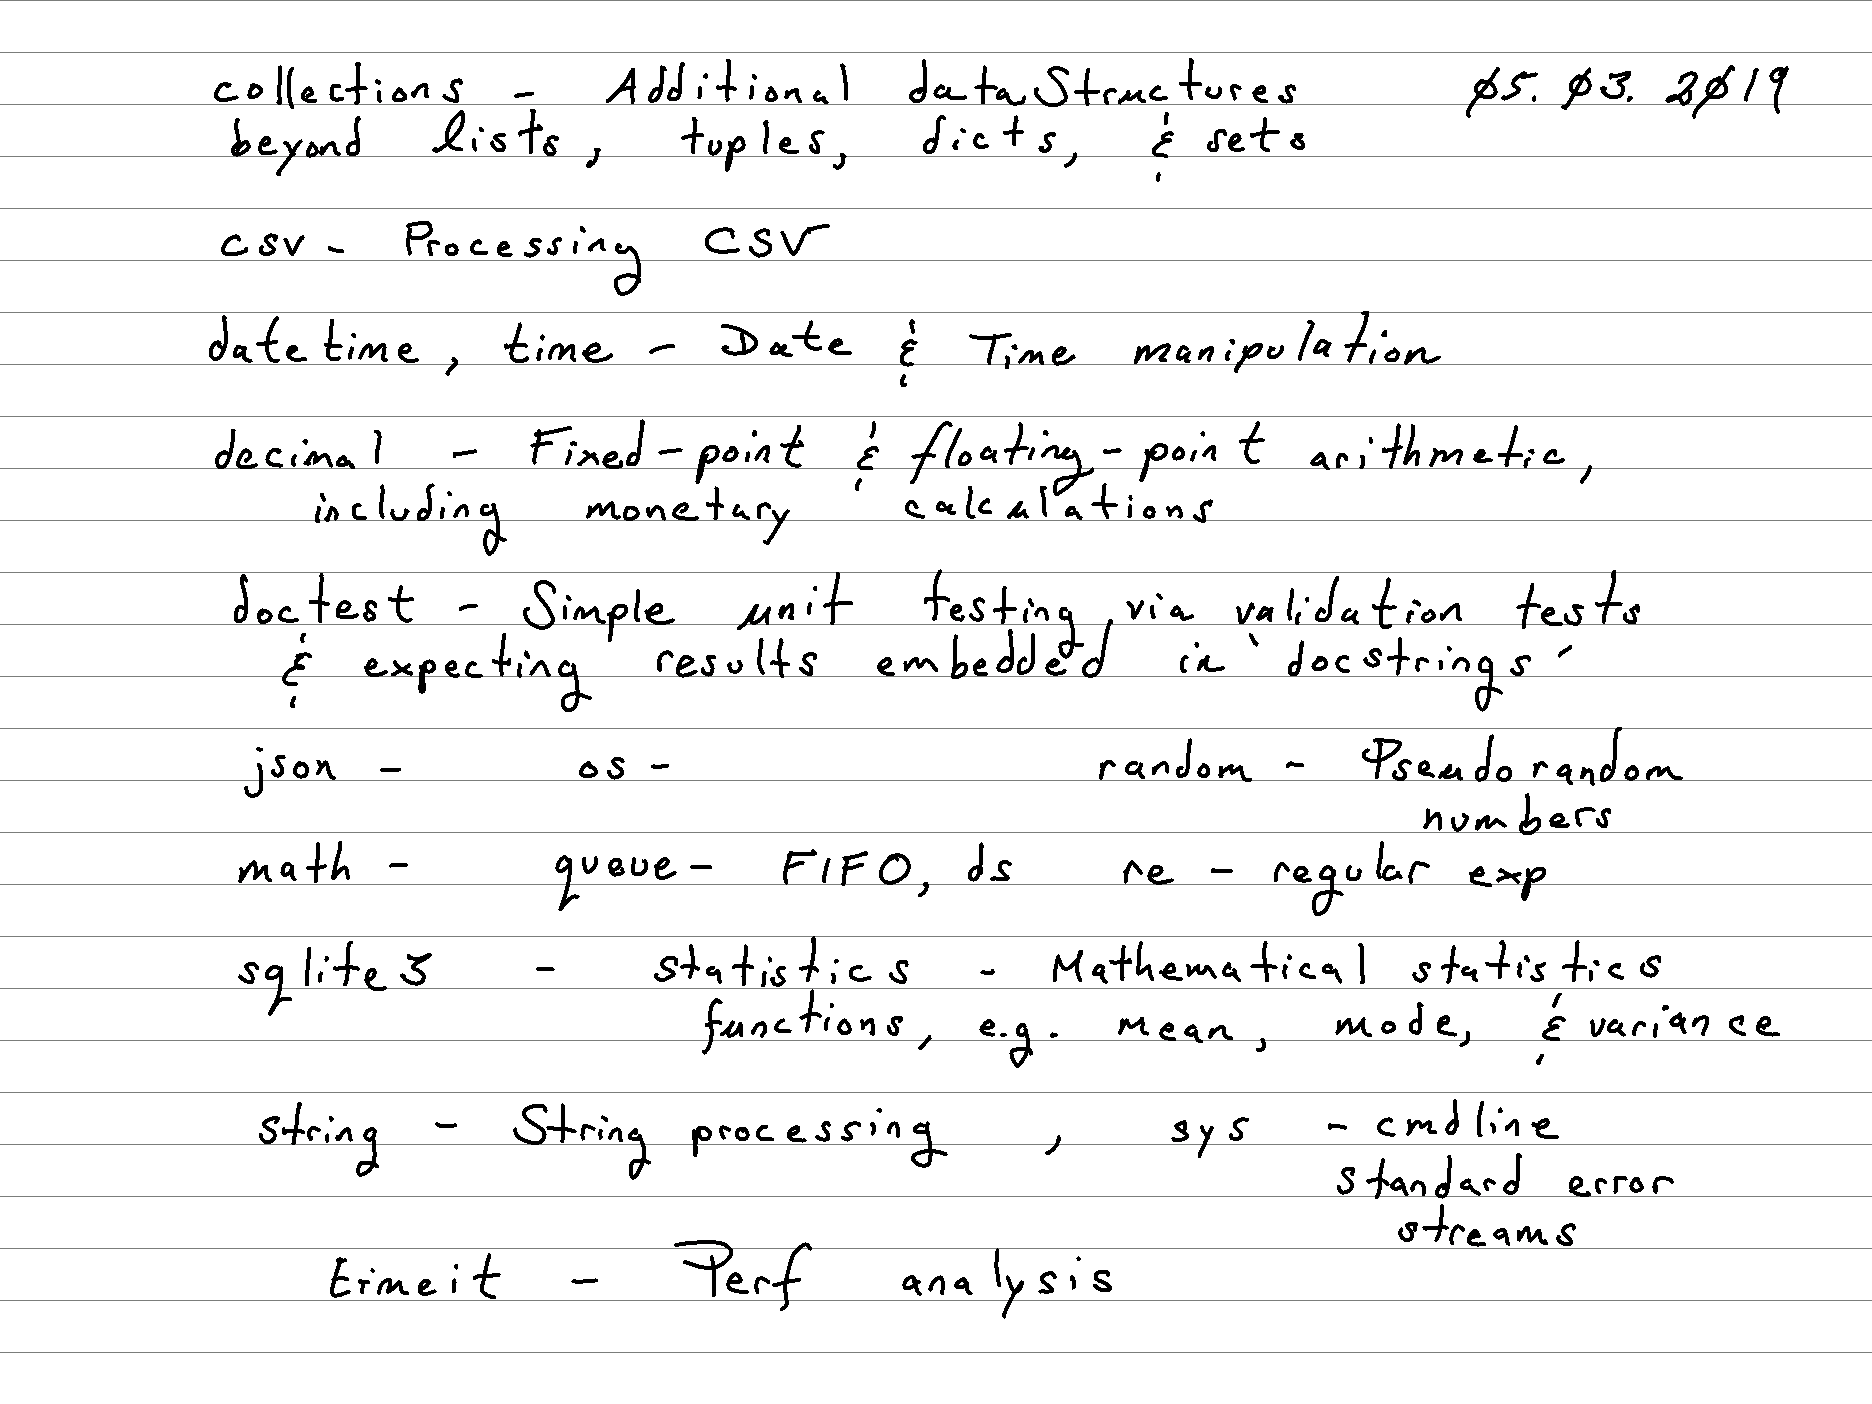 collections - Additional dataStructures 05.03.2019
beyond lists, tuples, dicts, & sets
csv - Processing CSV
datetime, time - Date & Time manipulation
decimal - Fixed-point & floating-point arithmetic,
including monetary calculations
doctest - Simple unit testing via validation tests
& expecting results embedded in 'docstrings'
json - os - random - Pseudorandom
numbers
math - queue - FIFO, ds re - regular exp
sqlite3 - statistics - Mathematical statistics
functions, e.g. mean, mode, & variance
string - String processing , sys - cmdline
standard error
streams
timeit - Perf analysis